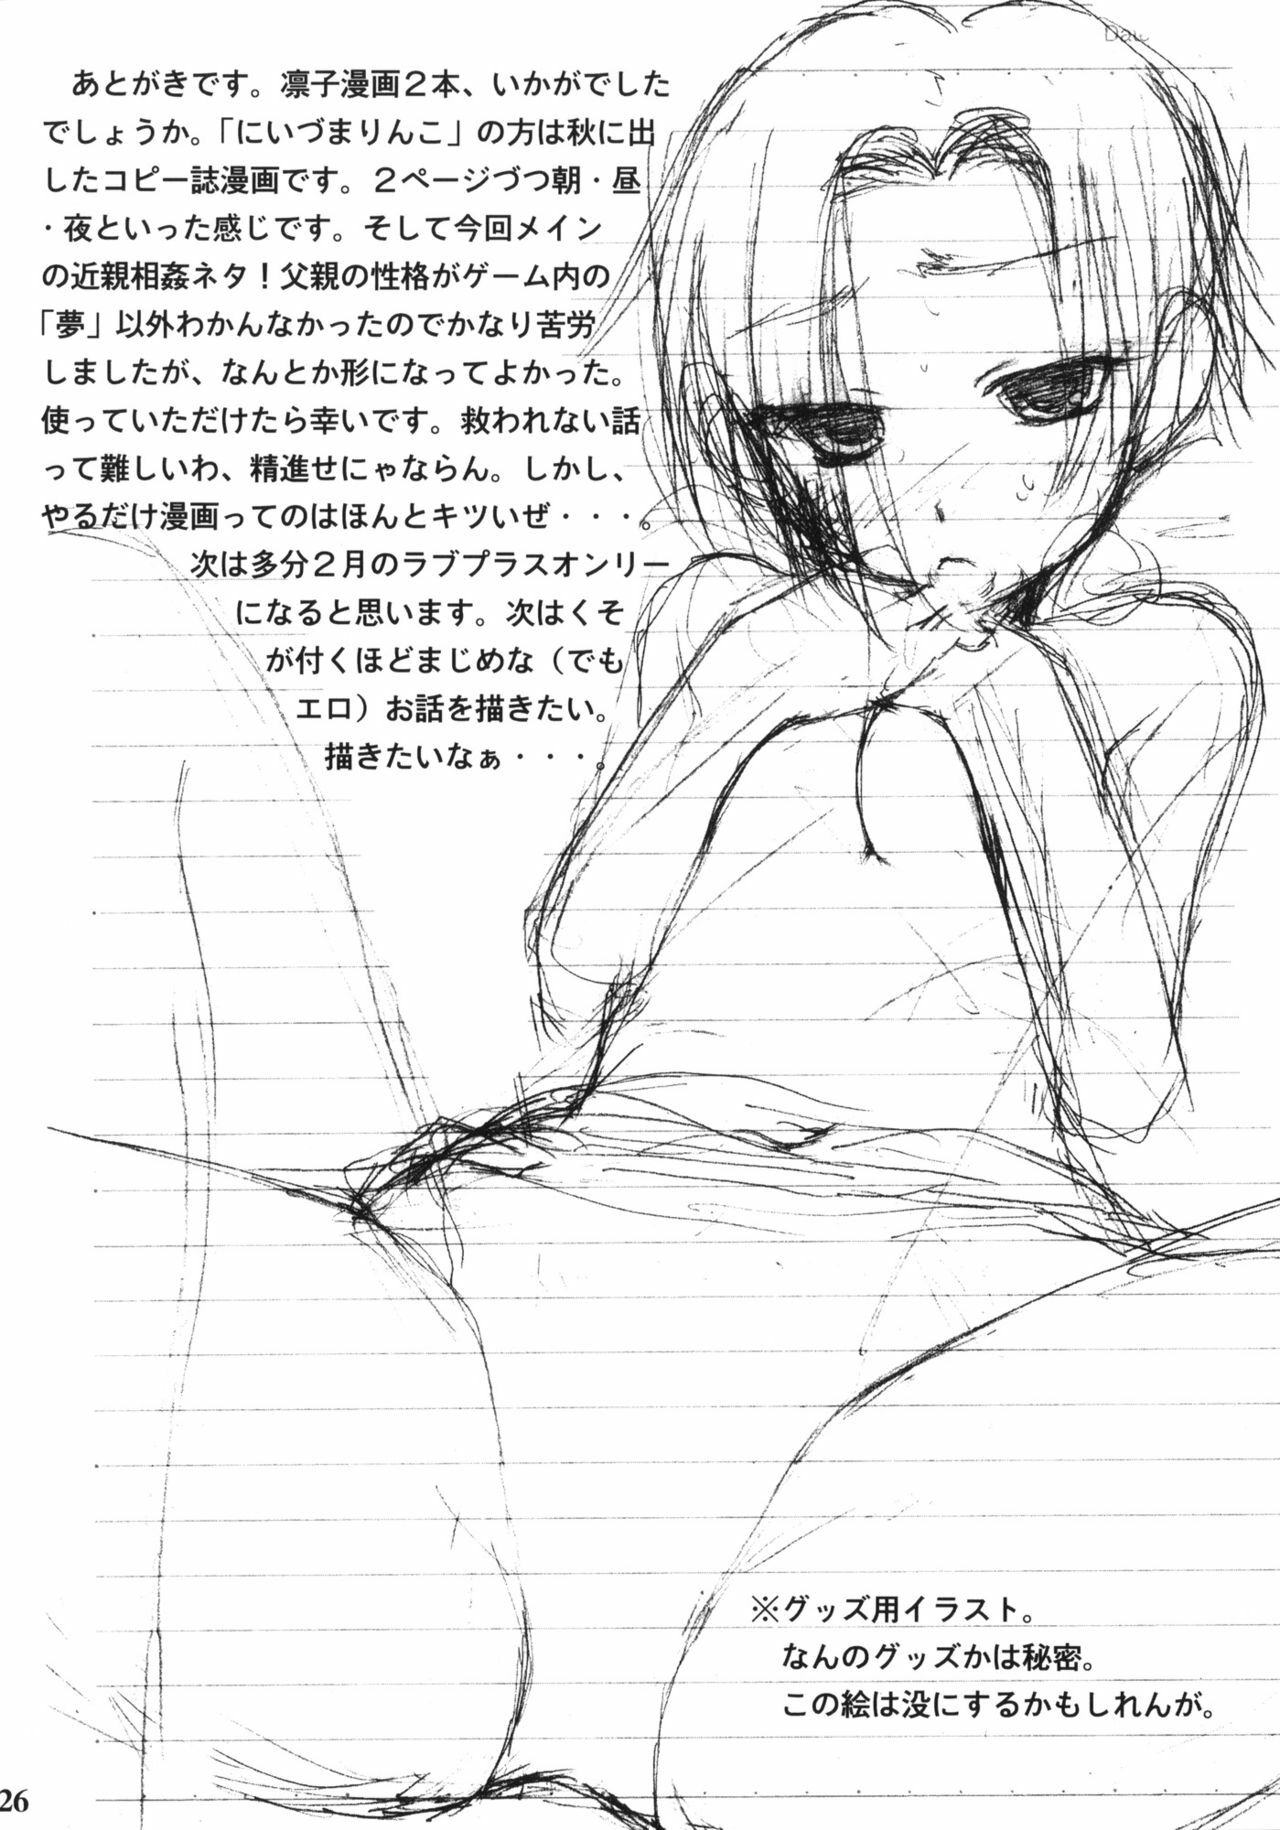 Date
あとがきです。凛子漫画２本、いかがでした
でしょうか。「にいづまりんこ」の方は秋に出
したコピー誌漫画です。２ページづつ朝・昼
・夜といった感じです。そして今回メイン
の近親相姦ネタ！父親の性格がゲーム内の
「夢」以外わかんなかったのでかなり苦労
しましたが、なんとか形になってよかった。
使っていただけたら幸いです。救われない話
って難しいわ、精進せにゃならん。しかし、
やるだけ漫画ってのはほんとキツいぜ・・・。
次は多分２月のラブプラスオンリー
になると思います。次はくそ
が付くほどまじめな（でも
エロ）お話を描きたい。
描きたいなぁ・・・。
※グッズ用イラスト。
なんのグッズかは秘密。
この絵は没にするかもしれんが。
26